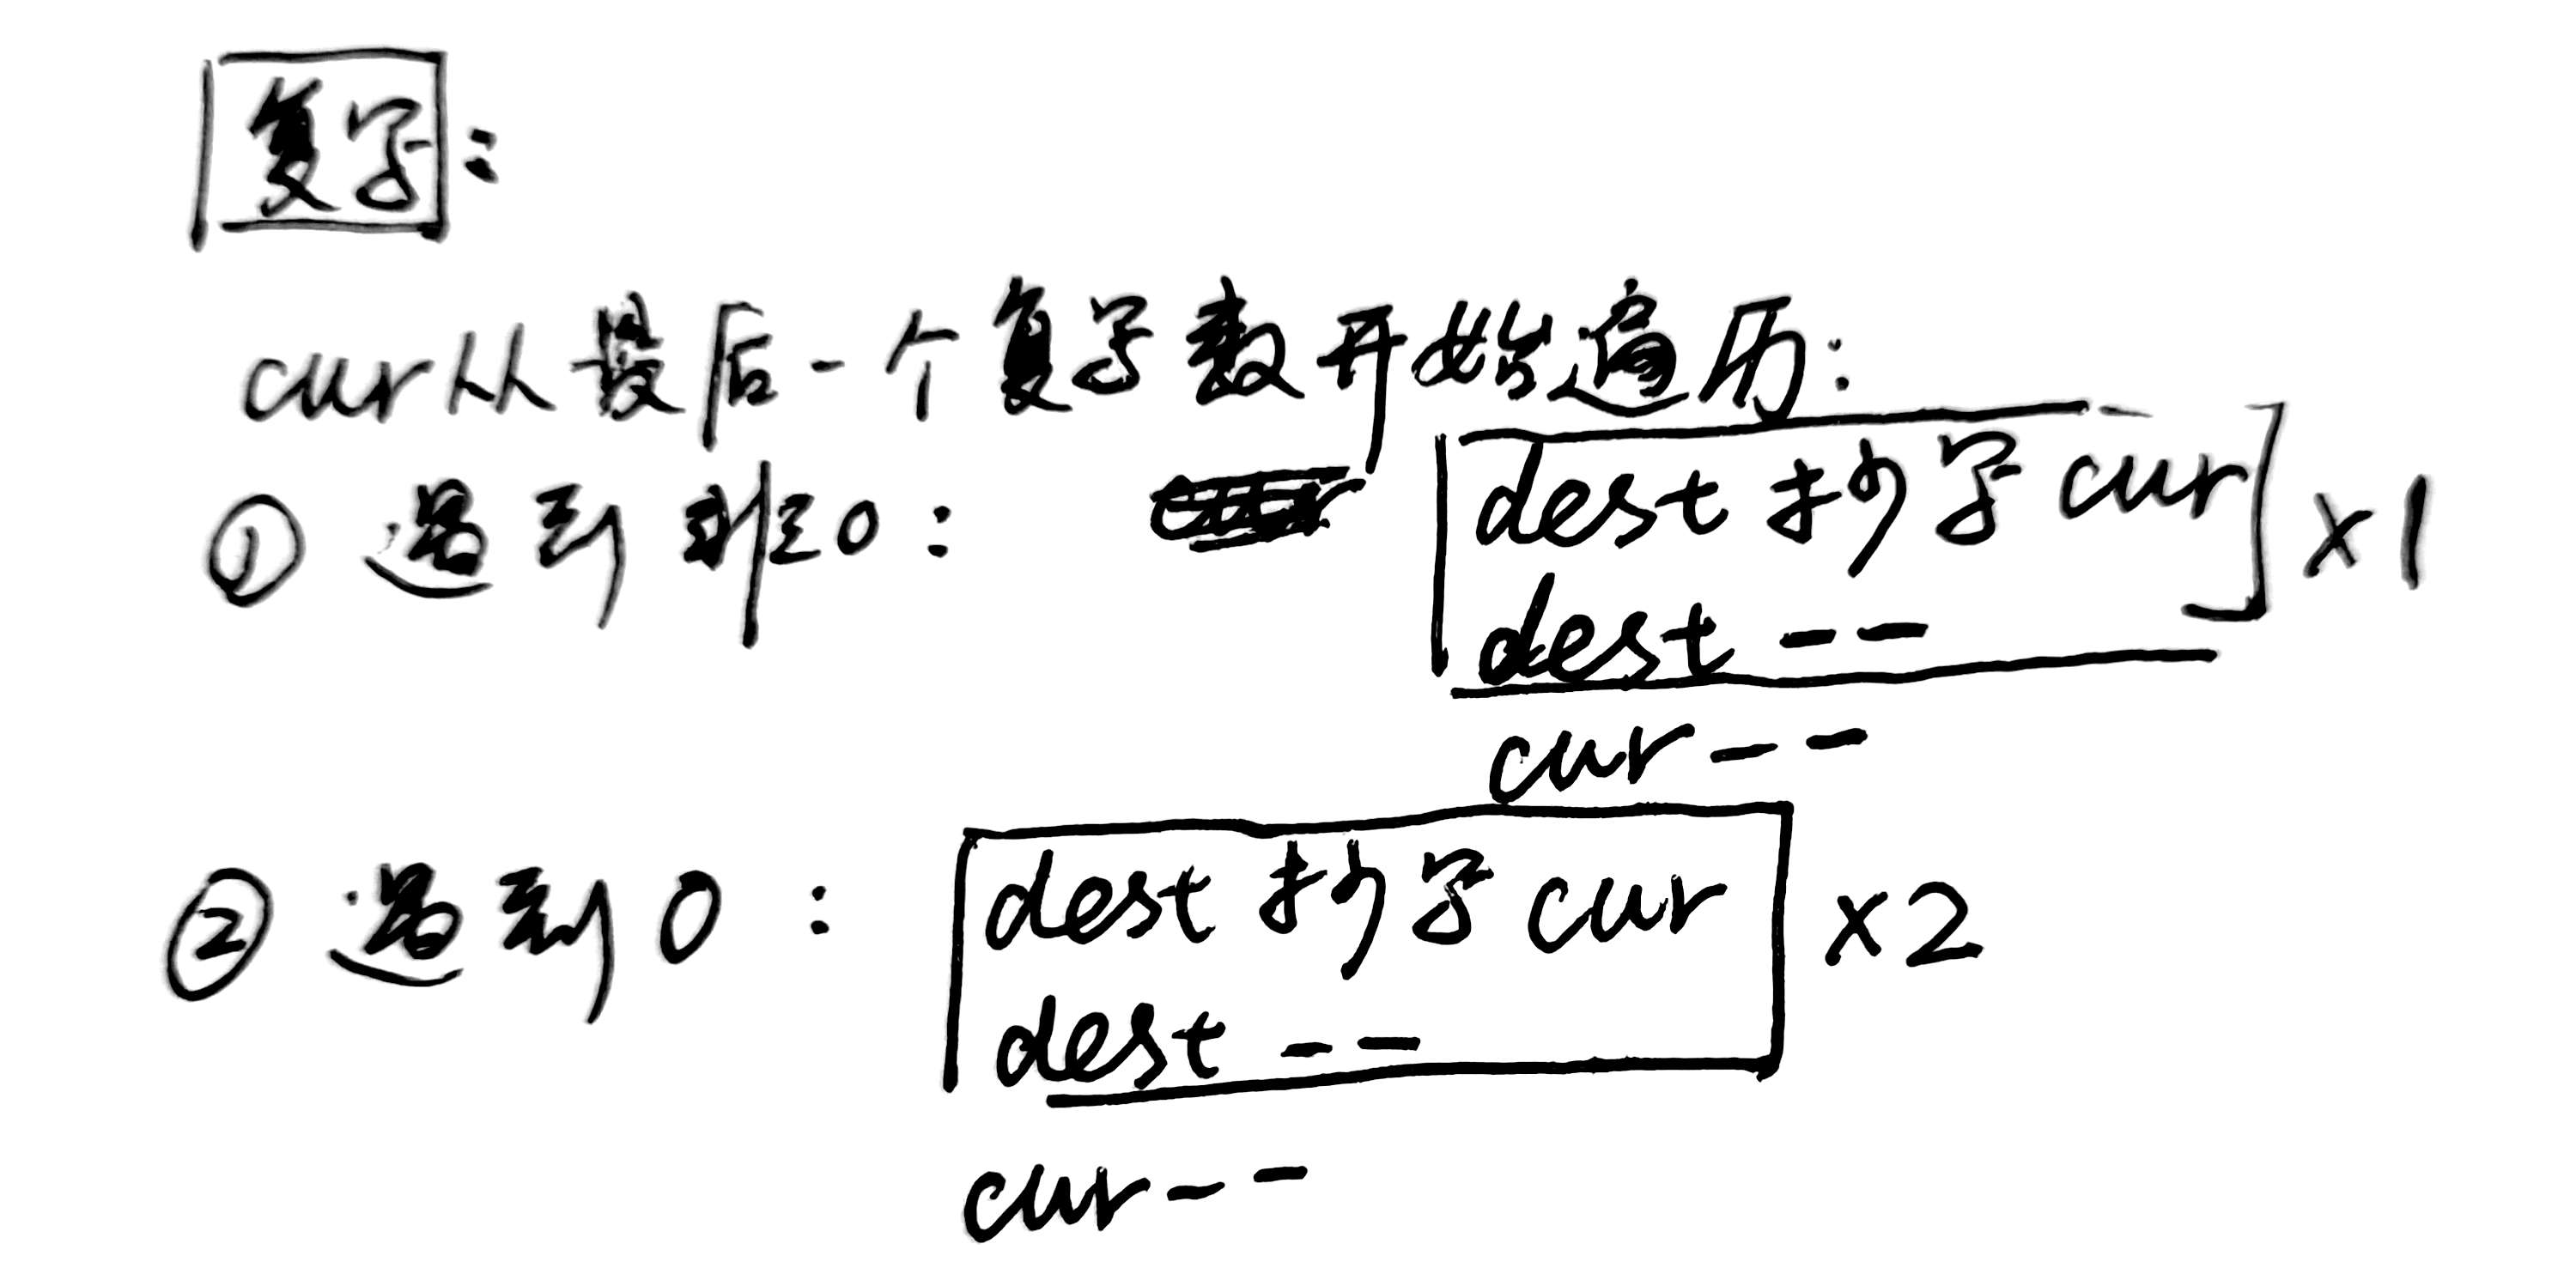 复写:
cur从最后一个复写数开始遍历:
① 遇到非0: dest 抄写 cur ×1
dest --
cur --
② 遇到0: dest 抄写 cur ×2
dest --
cur --